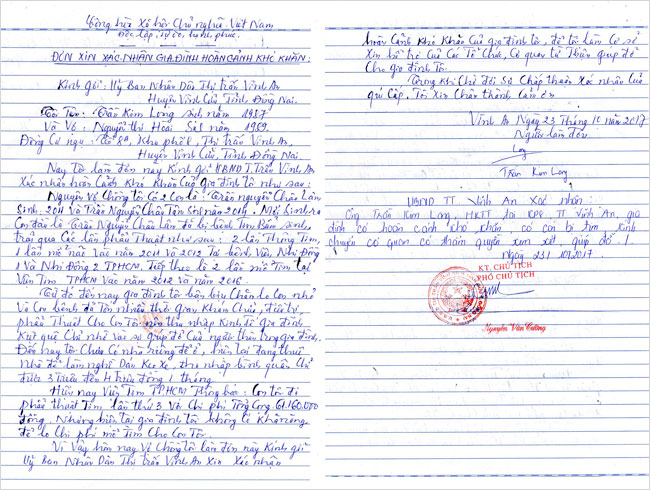 Cộng hòa Xã hội Chủ nghĩa Việt Nam
Độc lập, tự do, hạnh phúc.
ĐƠN XIN XÁC NHẬN GIA ĐÌNH HOÀN CẢNH KHÓ KHĂN:
Kính gởi: Uỷ Ban Nhân Dân Thị trấn Vĩnh An
Huyện Vĩnh Cửu, Tỉnh Đồng Nai.
Tôi Tên: Trần Kim Long Sinh năm 1987
Và Vợ: Nguyễn Thị Hoài Sinh năm 1989.
Đồng Cư ngụ: Khu phố 8, Thị trấn Vĩnh An,
Huyện Vĩnh Cửu, Tỉnh Đồng Nai.
Nay tôi làm đơn này Kính gởi UBND T.Trấn Vĩnh An
Xác nhận hoàn Cảnh Khó Khăn Của gia đình tôi như sau:
Nguyên Vợ Chồng tôi Có 2 Con là: Trần Nguyễn Châu Lâm
Sinh: 2011 Và Trần Nguyễn Châu Tâm Sinh năm 2014.
Con đầu là Trần Nguyễn Châu Lâm đã bị bệnh tim Bẩm sinh,
trải qua Các lần phẫu Thuật như sau: 2 lần Thông Tim,
1 lần mổ vào năm 2011 và 2012 Tại bệnh viện Nhi Đồng
1 Và Nhi Đồng 2 TPHCM. Tiếp theo là 2 lần mổ Tim tại
Viện Tim TPHCM Vào năm 2012 Và năm 2016.
Từ đó đến nay gia đình tôi
Và Con bệnh đã Tốn nhiều thời gian Khám Chữa, điều trị,
phẫu Thuật Cho Con Tôi nên thu nhập Kinh tế gia đình
giúp đỡ Của người thân trong gia đình,
Đến nay tôi Chưa Có nhà riêng để ở, hiện tại đang thuê
Nhà để làm nghề Dán Keo Xe, thu nhập bình quân Chỉ
được 3 Triệu đến 4 Triệu đồng 1 tháng.
Hiện nay Viện Tim TPHCM Thông báo: Con tôi đi
phẫu thuật Tim lần thứ 3 Với Chi phí Tổng Cộng 61.160.000
đồng. Nhưng hiện tại gia đình tôi không có khả năng
để lo Chi phí mổ Tim Cho Con Tôi.
Vì Vậy hôm nay Vợ Chồng tôi làm đơn này Kính gởi
Uỷ Ban Nhân Dân Thị trấn Vĩnh An Xin Xác nhận
hoàn Cảnh Khó Khăn Của gia đình tôi, để tôi làm Cơ sở
Xin hỗ trợ Của Các Tổ Chức, Cơ quan từ Thiện giúp đỡ
Cho gia đình Tôi.
Trong Khi Chờ đợi Sự Chấp thuận Xác nhận Của
quí Cấp. Tôi Xin Chân thành Cảm ơn
Vĩnh An Ngày 23 Tháng 10 năm 2017
Người làm đơn
Long
Trần Kim Long
UBND TT. Vĩnh An Xác nhận:
Ông Trần Kim Long, HKTT tại KP8, TT Vĩnh An, gia
đình có hoàn cảnh khó khăn, có con bị tim, kính
chuyển cơ quan có thẩm quyền xem xét, giúp đỡ.
ngày 23/10/2017.
KT. CHỦ TỊCH
PHÓ CHỦ TỊCH
Nguyễn Văn Cường